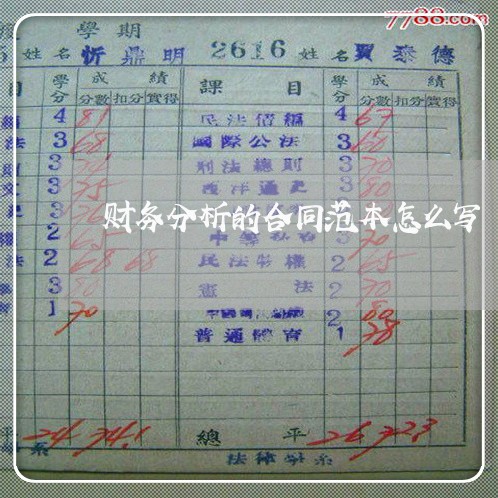 7788.com
學期
姓名 忻鼎明 2616 姓名 賈泰德
目 學分 成績 課目 學分 成績
分數 扣分 實得 分數 扣分 實得
4 81 民法債編 4 67
法 3 68 國際公法 3 60
3 刑法總則 3 70
3 75 西洋通史 3 80
財务分析的合同范本怎么写
2 65 3 70
法 2 68 68 民法物權 2 65
3 80 憲法 2 70
1 70 2 80
普通體育 1 78
平 24 74.1 總平 26 72.3
系 法律學系